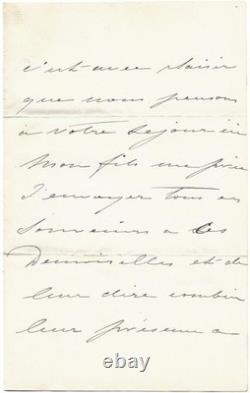 c'est avec plaisir
que nous pensons
à votre séjour ici
Mon fils me prie
d'envoyer tous
souvenirs a ces
Demoiselles et de
leur dire combien
leur présence a
ebay